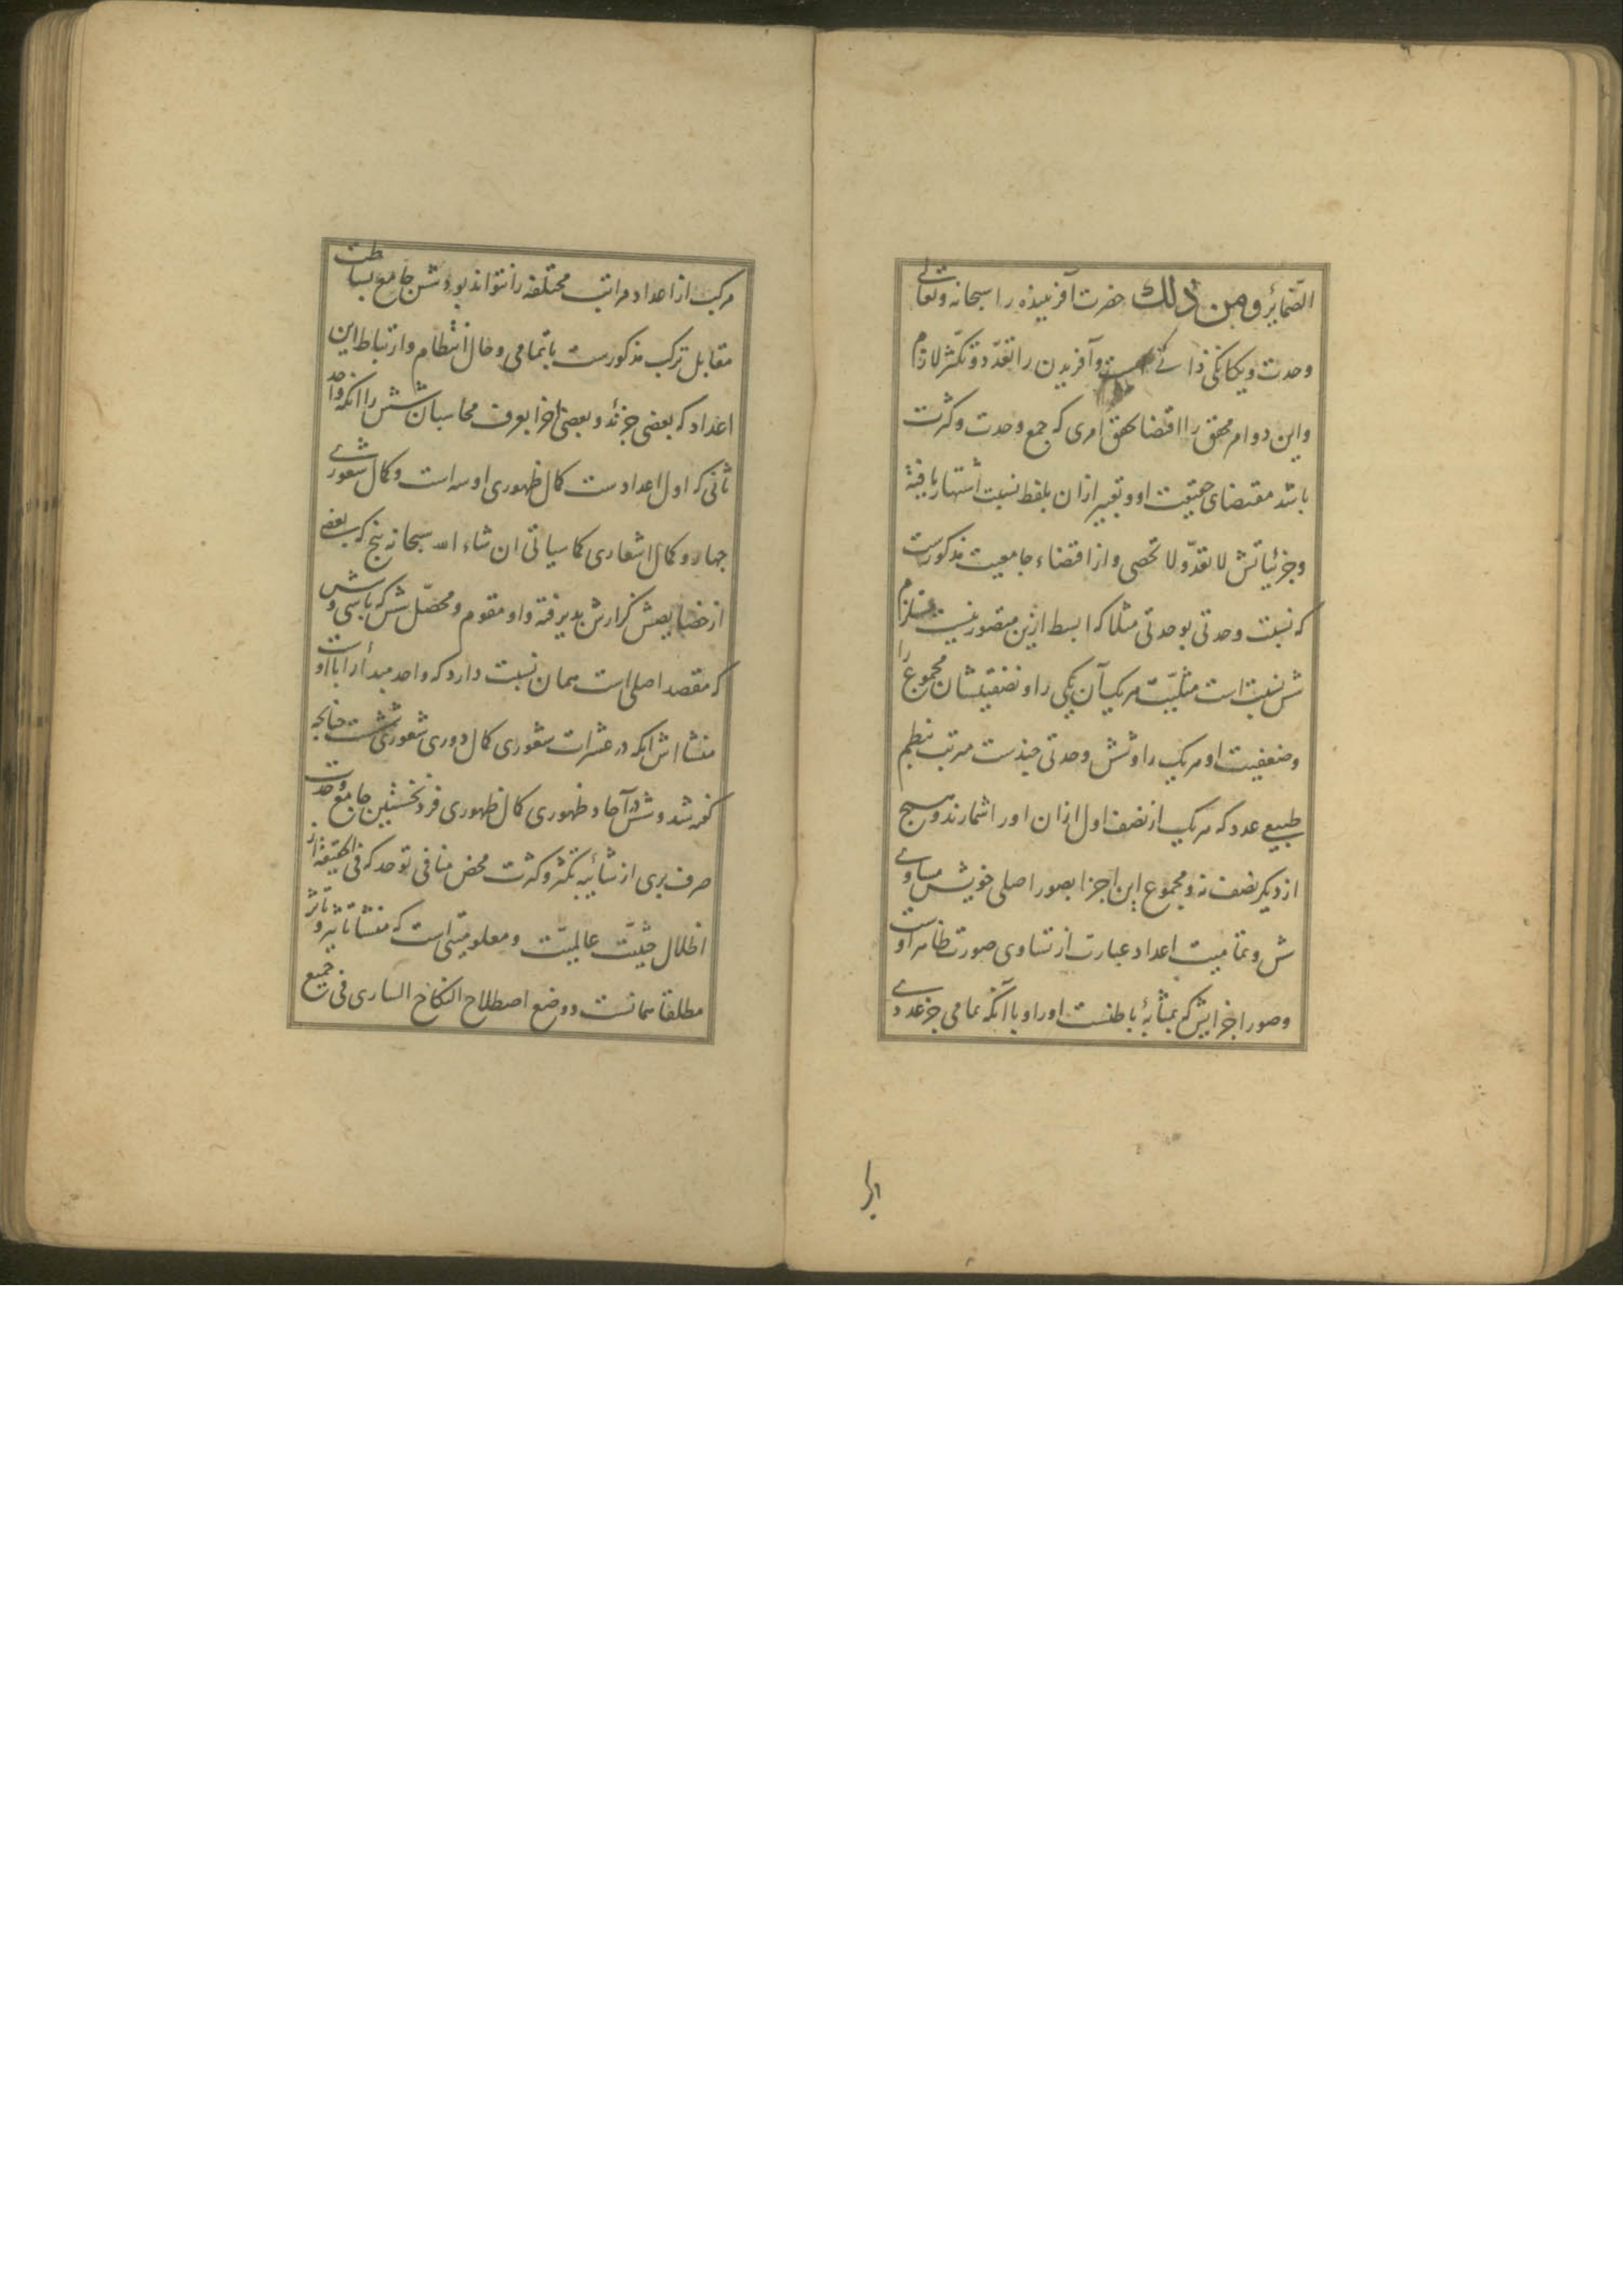 الضمایر و من ذلك حضرت آفریننده را سبحانه و تعالی
وحدت و یکانکی ذاتی است و آفریدن را تعدّد و تکثّر لازم
و این دو امر محقق را اقتضا تحقق امری که جمع وحدت و کثرت
باشد مقتضای حقیقت او و تعبیر ازان بلفظ نسبت اشتهار یافته
و جزئیاتش لا تعدّ و لا تحصی و از اقتضاء جامعیت مذکورست
که نسبت وحدتی بوحدتی مثلا که ابسط ازین متصور نیست مستلزم
شش نسبت است مثلیّت هر یک آن یکی را و نصفیتشان مجموع را
و ضعفیت او هر یک را و شش وحدتی چندست مرتب بنظم
طبیعی عدد که هر یک از نصف اول ازان او را شمارند و هیچ
از دیکر نصف نه و مجموع این اجزا بصور اصلی خویش مساوی
شش و تمامیت اعداد عبارت از تساوی صورت ظاهر اوست
و صور اجزایش که بمثابهٔ باطنست او را و با آنکه تمامی جز عددی
مرکب از اعداد مراتب مختلفه را نتواند بود شش جامع بساطت
مقابل ترکب مذکورست با تمامی و حال انتظام و ارتباط این
اعداد که بعضی جزئد و بعضی اجزا بعرف محاسبان شش را آنکه واحد
ثانی که اول اعدادست کمال ظهوری او سه است و کمال شعوری
جهار و کمال اشعاری کما سیاتی ان شاء الله سبحانه پنج که بعضی
از خصایصش کزارش پذیرفته و او مقوم و محصّل شش که باسی و شش
که مقصد اصلی است همان نسبت دارد که واحد مبدأ را با او
منشا اش آنکه در عشرات شعوری کمال دوری شعوری شش است چنانچه
کفته شد و شش در آحاد ظهوری کمال ظهوری فرد نخستین جامع وحدت
صرف بری از شائبه تکثر و کثرت محض منافی توحد که فی الحقیقه از
اظلال حیثیّت عالمیّت و معلومیّتی است که منشا تاثیر و تاثر
مطلقا همانست و وضع اصطلاح النکاح الساری فی جمیع